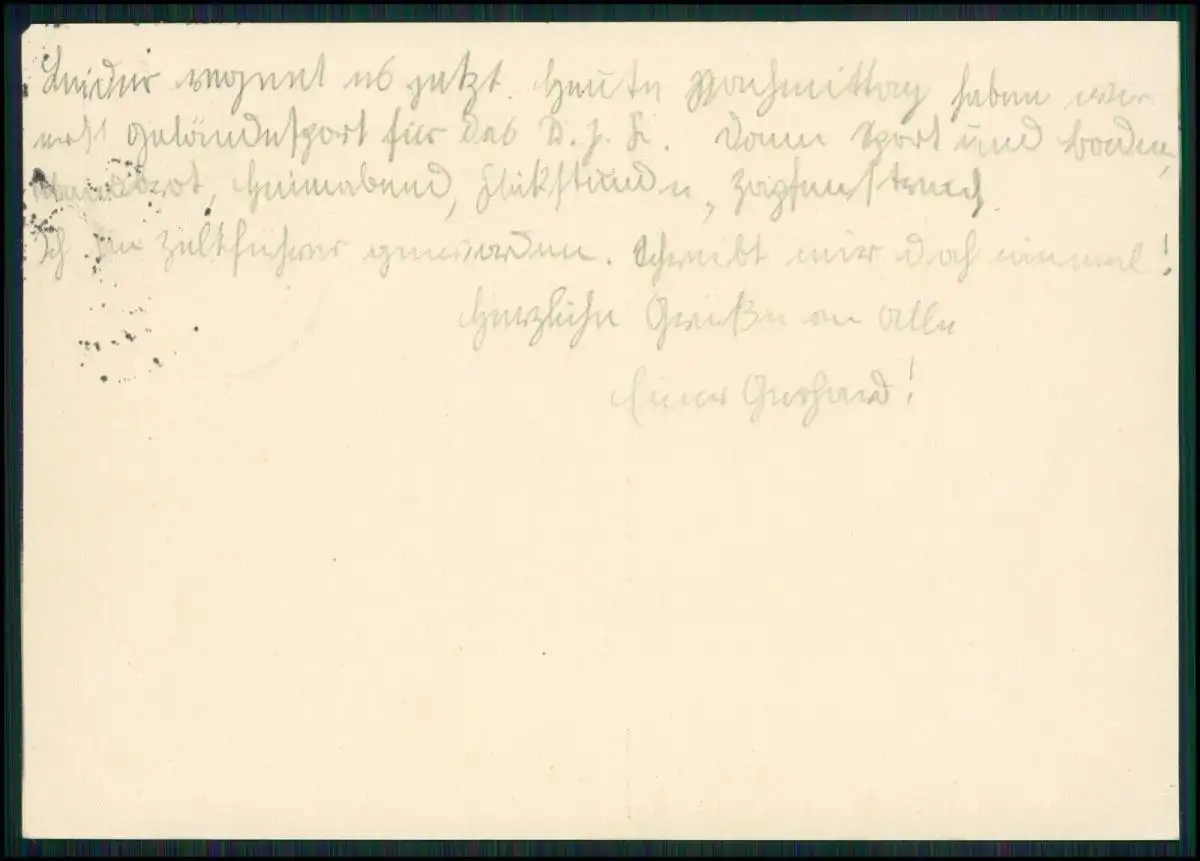 Leider regnet es jetzt. Heute Nachmittag haben wir
erst Geländesport für das D. J. L. Dann Sport und Baden,
Abendbrot, Heimabend, Flickstunde, Zapfenstreich.
Ich bin Zeltführer geworden. Schreibt mir doch einmal!
Herzliche Grüße an alle
Euer Gerhard!